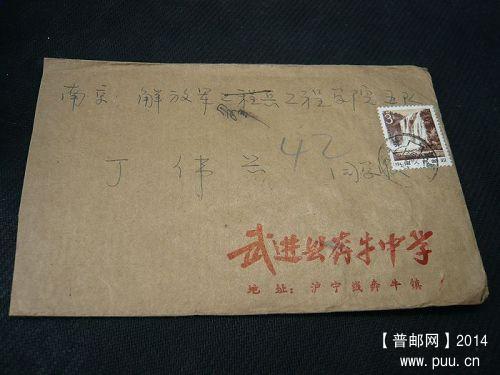 南京 解放军工程兵工程学院五队
3
中国人民邮政
丁伟
42
同学
武进县奔牛中学
地址：沪宁线奔牛镇
【普邮网】2014
www.puu.cn